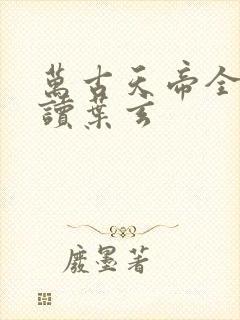 萬古天帝全
讀葉玄
廢墨著